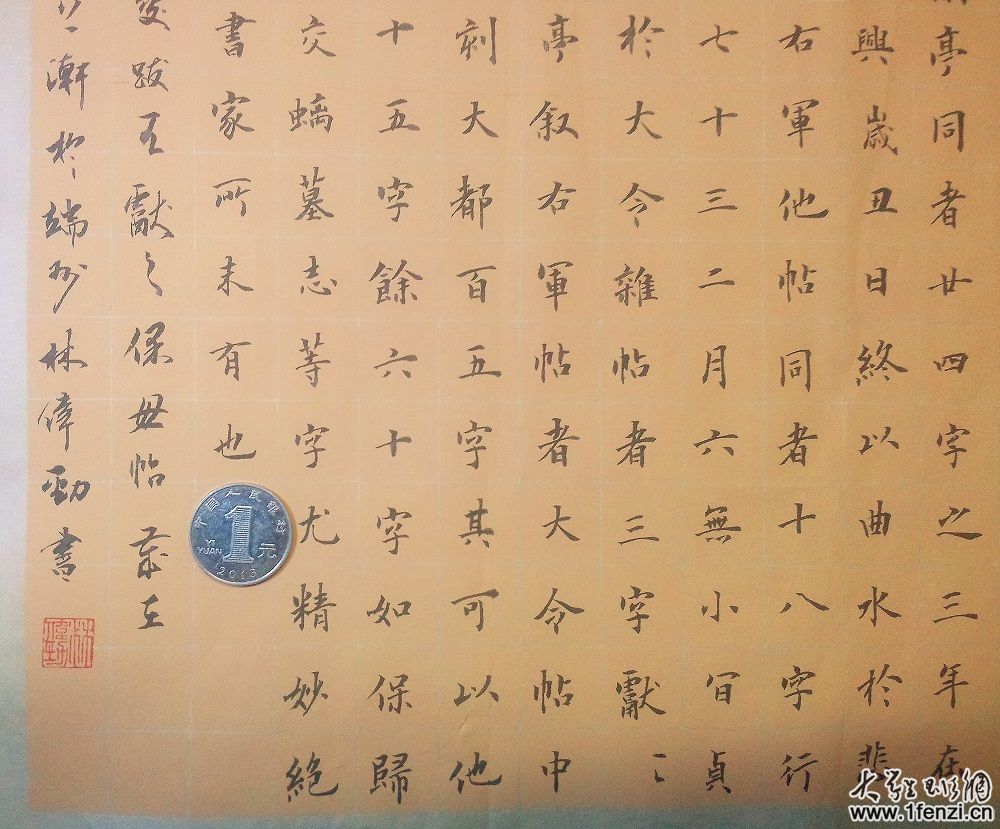 亭同者廿四字之三年在
興歲丑日終以曲水於悲
右軍他帖同者十八字行
七十三二月六無小百貞
於大令雜帖者三字獻〻
亭叙右軍帖者大令帖中
刻大都百五字其可以他
十五字餘六十字如保歸
交螭墓志等字尤精妙絶
書家所未有也
跋王獻之保母帖歲在
漸於端州林偉勁書
中国人民银行
1元
YI YUAN
2013
www.1fenzi.cn